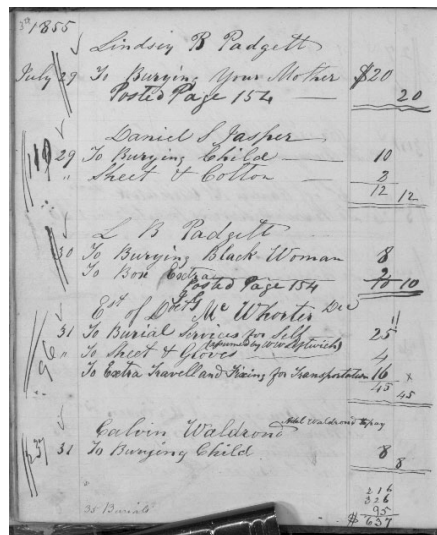 1855
Lindsey R Padgett
July 29 To Burying Your Mother $20
Posted Page 154 — 20
Daniel S Jasper
29 To Burying Child — 10
" Sheet & Cotton — 2
12 12
L B Padgett
30 To Burying Black Woman 8
To Box Extra 2
Posted Page 154 10 10
Est of Doct J G McWhorter Dec
31 To Burial Services for Self 25
" To Sheet & Gloves 4
To Extra Travell and Fixing for Transportation 16
45 45
Calvin Waldrond
31 To Burying Child 8
8
35 Burials
216
326
95
$637